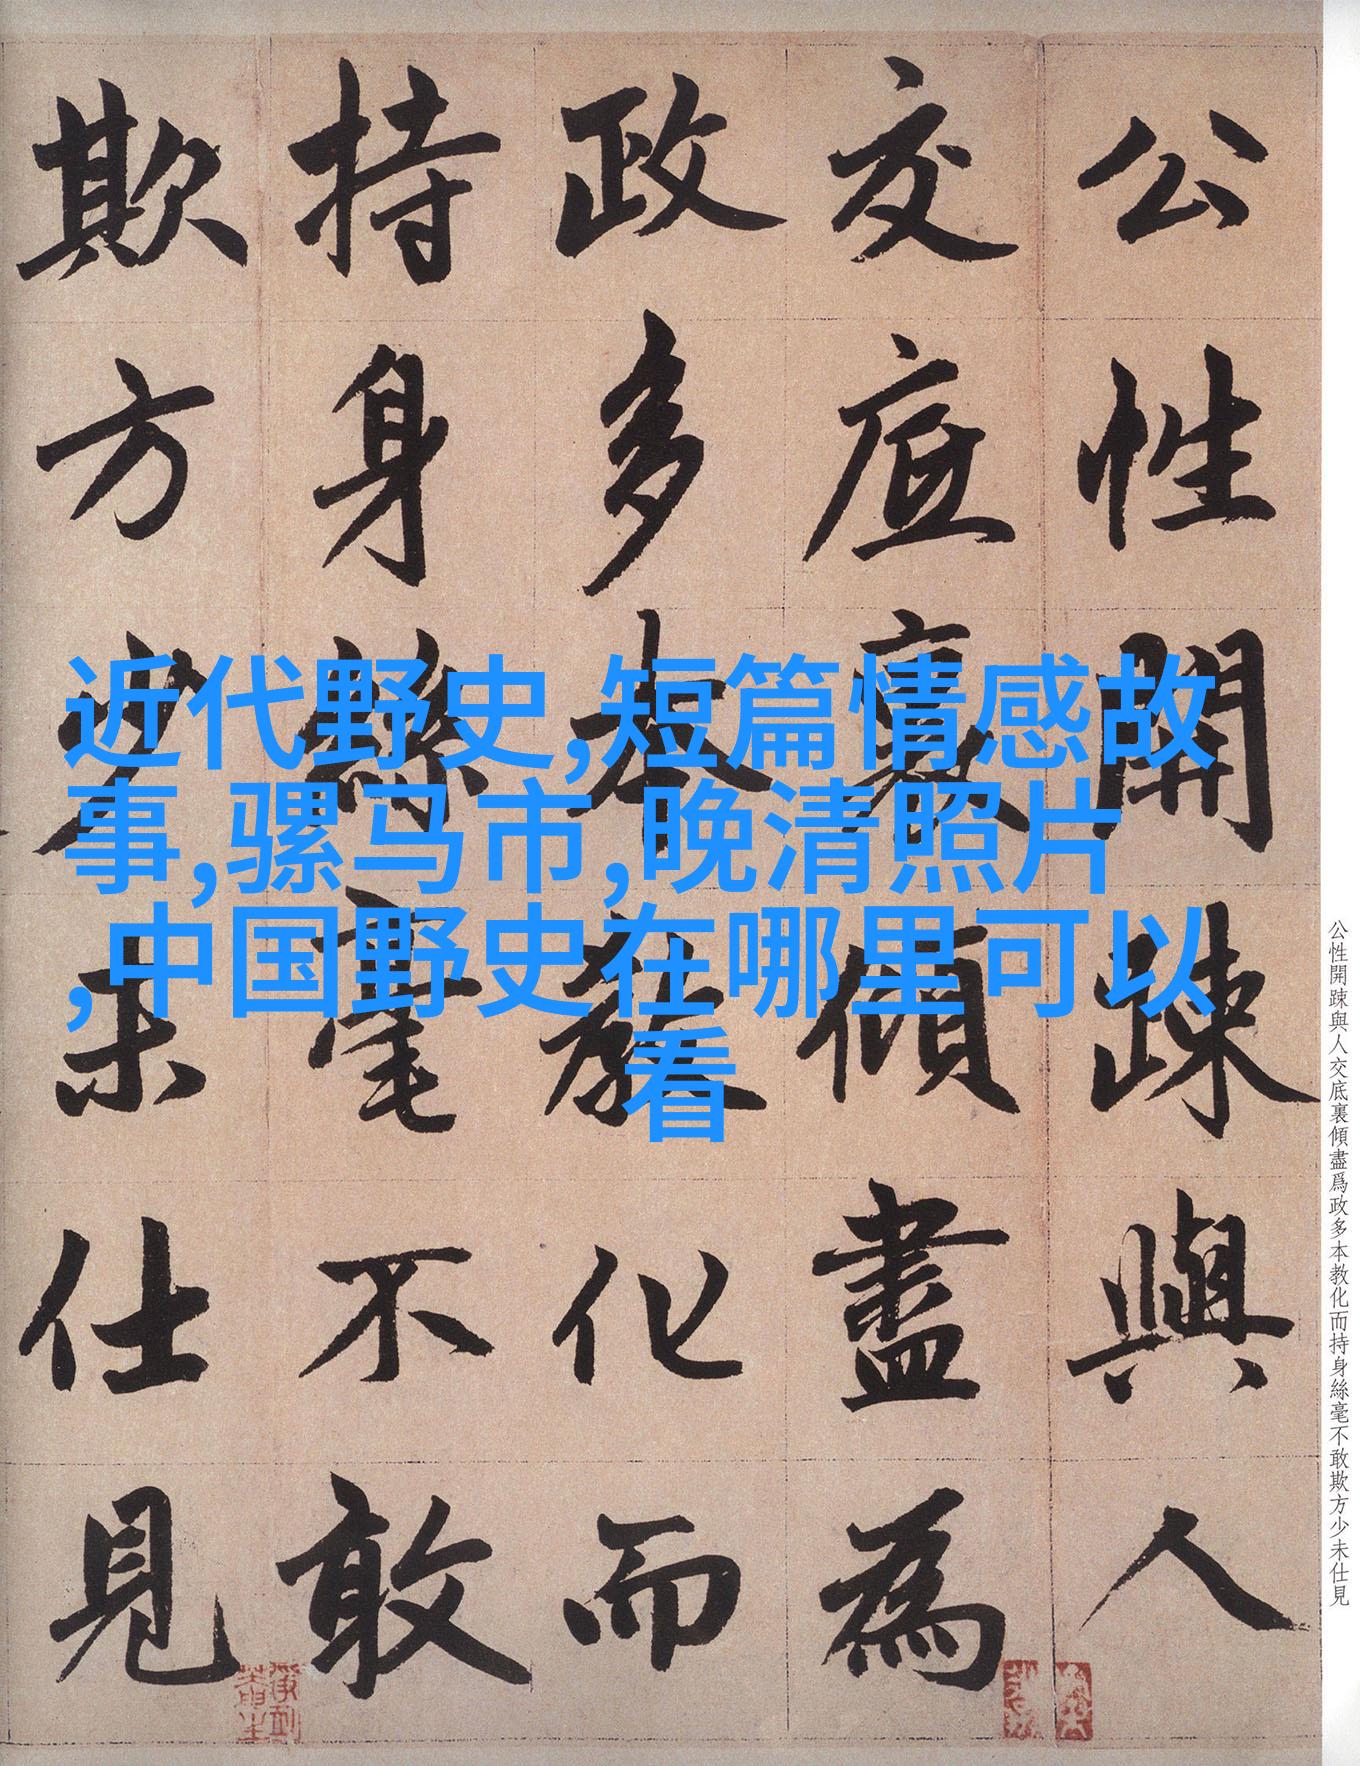 公性開踈與人
交底裏傾盡為
政多本教化而
持身絲毫不敢
欺方少未仕見
近代野史,短篇情感故
事,骡马市,晚清照片
,中国野史在哪里可以
看
公性開踈與人交底裏傾盡爲政多本教化而持身絲毫不敢欺方少未仕見